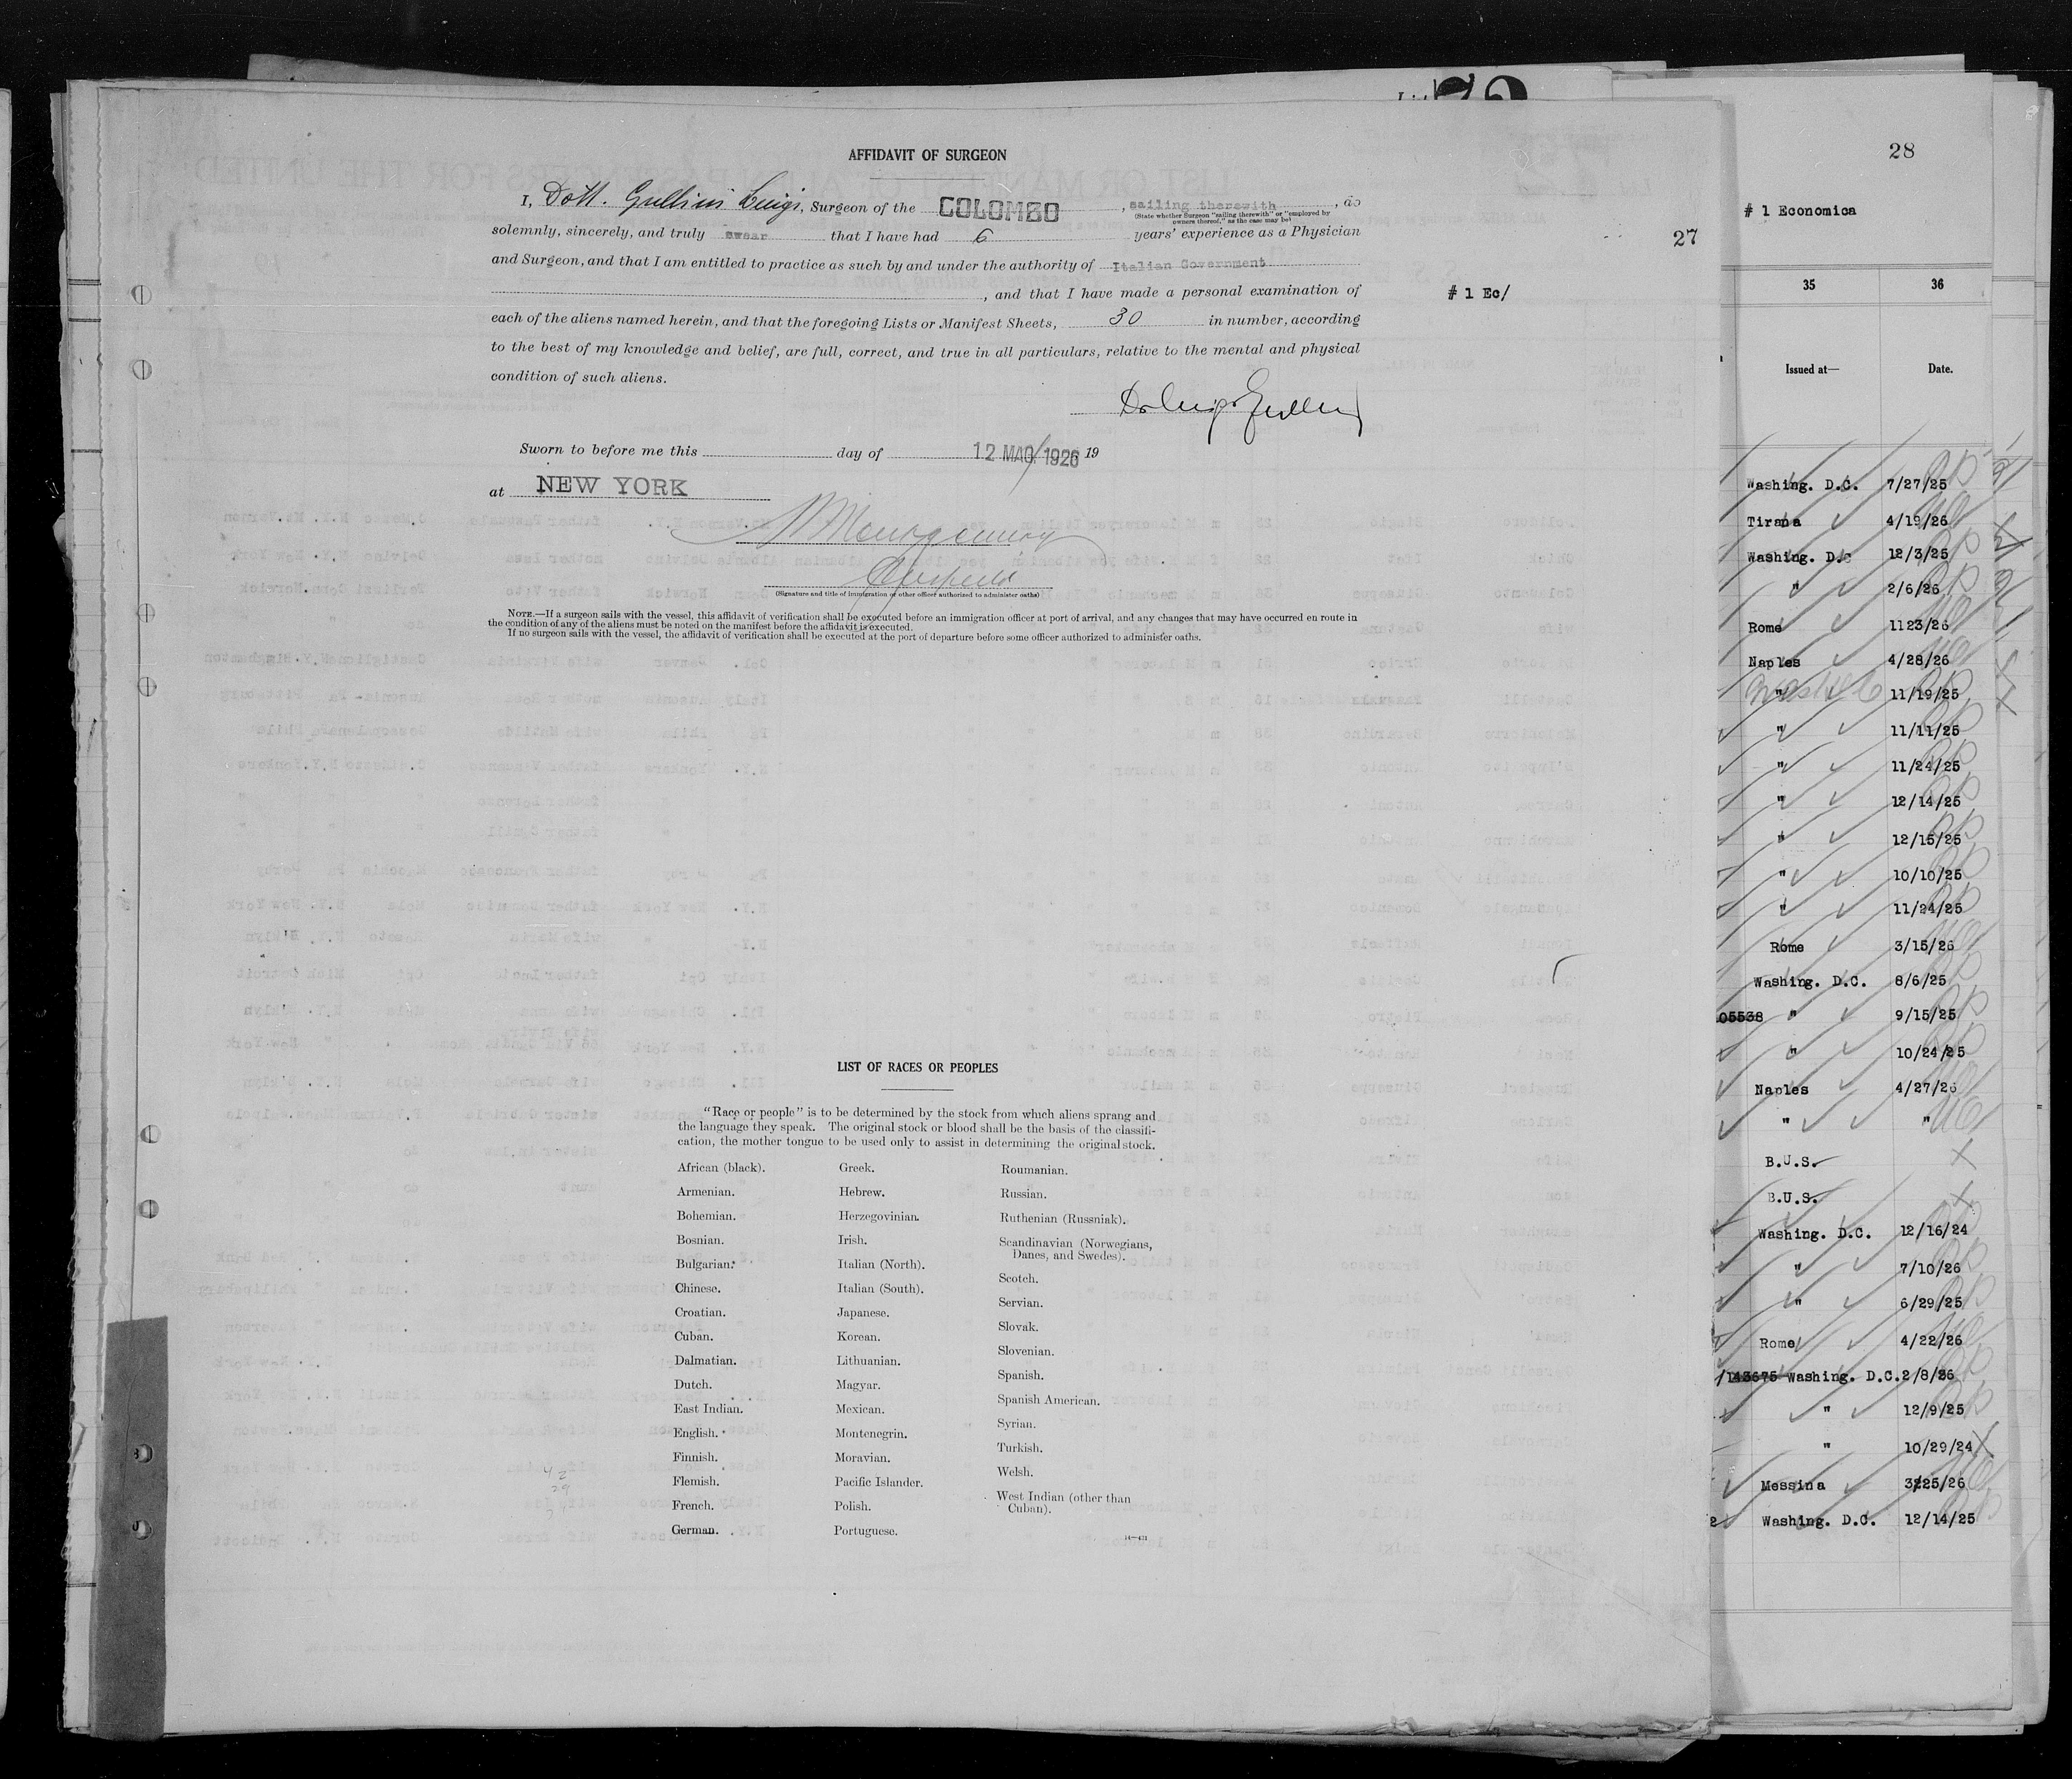 AFFIDAVIT OF SURGEON
I, Dott. Gullini Luigi, Surgeon of the COLOMBO, sailing therewith, do
(State whether Surgeon "sailing therewith" or "employed by
owners thereof," as the case may be)
solemnly, sincerely, and truly swear that I have had 6 years' experience as a Physician
and Surgeon, and that I am entitled to practice as such by and under the authority of Italian Government
, and that I have made a personal examination of
each of the aliens named herein, and that the foregoing Lists or Manifest Sheets, 30 in number, according
to the best of my knowledge and belief, are full, correct, and true in all particulars, relative to the mental and physical
condition of such aliens.
Sworn to before me this day of 12 MAG. 1926 19
at NEW YORK
(Signature and title of immigration or other officer authorized to administer oaths)
NOTE.—If a surgeon sails with the vessel, this affidavit of verification shall be executed before an immigration officer at port of arrival, and any changes that may have occurred en route in
the condition of any of the aliens must be noted on the manifest before the affidavit is executed.
If no surgeon sails with the vessel, the affidavit of verification shall be executed at the port of departure before some officer authorized to administer oaths.
LIST OF RACES OR PEOPLES
"Race or people" is to be determined by the stock from which aliens sprang and
the language they speak. The original stock or blood shall be the basis of the classifi-
cation, the mother tongue to be used only to assist in determining the original stock.
African (black).
Armenian.
Bohemian.
Bosnian.
Bulgarian.
Chinese.
Croatian.
Cuban.
Dalmatian.
Dutch.
East Indian.
English.
Finnish.
Flemish.
French.
German.
Greek.
Hebrew.
Herzegovinian.
Irish.
Italian (North).
Italian (South).
Japanese.
Korean.
Lithuanian.
Magyar.
Mexican.
Montenegrin.
Moravian.
Pacific Islander.
Polish.
Portuguese.
Roumanian.
Russian.
Ruthenian (Russniak).
Scandinavian (Norwegians,
Danes, and Swedes).
Scotch.
Servian.
Slovak.
Slovenian.
Spanish.
Spanish American.
Syrian.
Turkish.
Welsh.
West Indian (other than
Cuban).
27
# 1 Ec/
28
# 1 Economica
35 36
Issued at— Date.
Washing. D.C. 7/27/25
Tirana 4/19/26
Washing. D.C 12/3/25
" 2/6/26
Rome 1123/26
Naples 4/28/26
" 11/19/25
" 11/11/25
" 11/24/25
" 12/14/25
" 12/15/25
" 10/10/25
" 11/24/25
Rome 3/15/26
Washing. D.C. 8/6/25
05538 " 9/15/25
" 10/24/25
Naples 4/27/26
" "
B.U.S.
B.U.S.
Washing. D.C. 12/16/24
" 7/10/26
" 6/29/25
Rome 4/22/26
143675 Washing. D.C. 2/8/26
" 12/9/25
" 10/29/24
Messina 3/25/26
Washing. D.C. 12/14/25